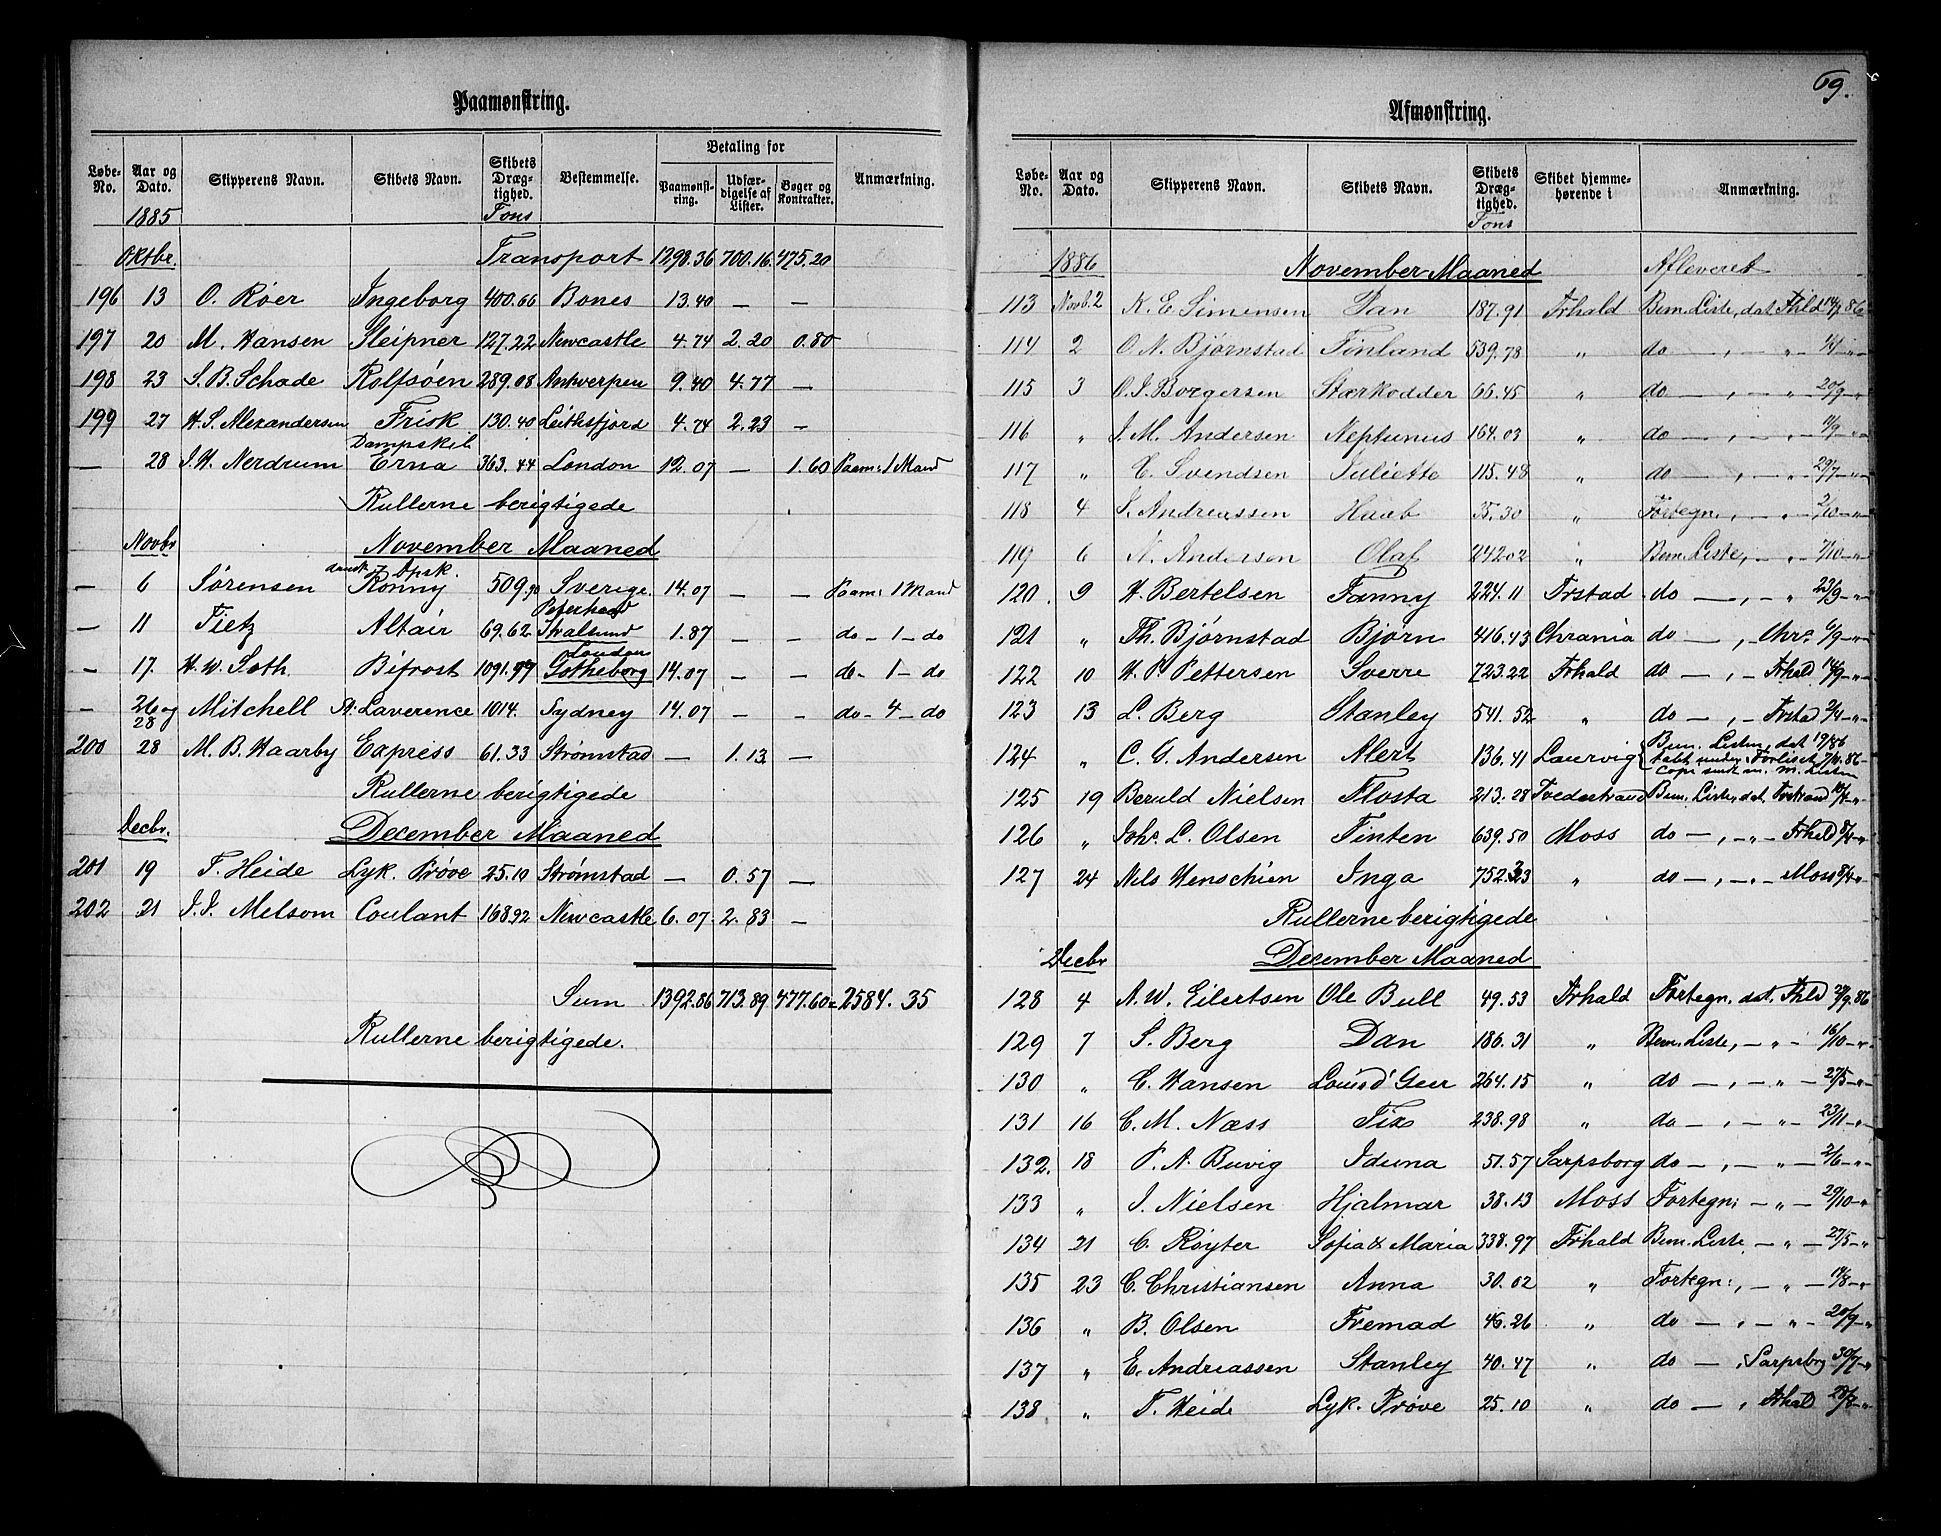 Paamønstring.
Løbe-No. | Aar og Dato. | Skipperens Navn. | Skibets Navn. | Skibets Dræg-tighed. | Bestemmelse. | Betaling for | Paamønst-ring. | Udfær-digelse af Lister. | Bøger og Kontrakter. | Anmærkning.
1885 Tons
Oktbr. Transport 1298.36 700.16 475.20
196 13 O. Røer Ingeborg 400.66 Bones 13.40 — —
197 20 M. Hansen Sleipner 127.22 Newcastle 4.74 2.20 0.80
198 23 S. B. Schade Rolfsøen 289.08 Antwerpen 9.40 4.77 —
199 27 H. S. Alexandersen Frisk 130.40 Leithsfjord 4.74 2.23 —
Dampskib
— 28 J. H. Nerdrum Erna 363.44 London 12.07 — 1.60 Paam: 1 Mand
Rullerne berigtigede
Novbr November Maaned
dansk Dpsk.
— 6 Sørensen Ronny 509.90 Sverige. 14.07 — — Paam: 1 Mand
Peterhead
— 11 Tietz Altair 69.62 Stralsund 1.87 — — do - 1 - do
London
— 17. H. W. Soth Bifrost 1091.97 Gotheborg 14.07 — — do - 1 - do
— 26 og 28 Mitchell A. Laverence 1014. Sydney 14.07 — — do - 4 - do
200 28 M. B. Haarby Express 61.33 Strømstad — 1.13 —
Rullerne berigtigede
Decbr. December Maaned
201 19 T. Heide Lyk. Prøve 25.10 Strømstad — 0.57 —
202 21 J. J. Melsom Coulant 168.92 Newcastle 6.07 2.83 —
Sum 1392.86 713.89 477.60 = 2584.35
Rullerne berigtigede.
69.
Afmønstring.
Løbe-No. | Aar og Dato. | Skipperens Navn. | Skibets Navn. | Skibets Dræg-tighed. | Skibet hjemme-hørende i | Anmærkning.
Tons
1886 November Maaned Afleveret
113 Novb. 2 K. E. Simensen Dan 187.91 Frhald Bem. Liste, dat Fhld 14/9 86
114 2 O. N. Bjørnstad Finland 539.78 " do — , — " —
115 3 O. J. Borgersen Stærkodder 66.45 " do — , — " — 20/9 — "
116 " J. M. Andersen Neptunus 164.03 " do — , — " —
117 " C. Svendsen Juliette 115.48 " do — , — " — 29/7 — "
118 4 S. Andreassen Haab 35.30 " Fortegn., — " — 2/10 — "
119 6 N. Andersen Olaf 242.02 " Bem. Liste, — " — 7/10 — "
120. 9 H. Bertelsen Fanny 224.11 Frstad do — , — " 23/9 — "
121 " Th. Bjørnstad Bjørn 416.43 Chrania do — , Chr. 6/9 — "
122 10 H. P. Pettersen Sverre 723.22 Frhald do — , — Frhald 14/9 — "
123 13 L. Berg Stanley 541.52 " do — , — Frstad 2/4 — "
124 " C. G. Andersen Alert 136.41 Laurvig Bem. Listen, dat 19/86
tabt under Forliset 7/11 86 -
copi sendt m. m. Listen
125 19 Beruld Nielsen Flosta 213.28 Tvedestrand Bem. Liste, dat. — "
126 " Johs. L. Olsen Tinten 639.50 Moss do — , — " — Frhald 8/4 — "
127 24 Nils Henschien Inga 752.23 " do — , — " — Moss 8/4 "
Rullerne berigtigede
Decbr December Maaned
128 4 A. W. Eilertsen Ole Bull 49.53 Frhald Fortegn. dat. Fhld 27/9 86
129 7 S. Berg Dan 186.31 " Bem. Liste, — " — 16/10 — "
130 " C. Hansen Louis d' Geer 264.15 " do — , — " — 27/5 — "
131 16 C. M. Næss Fix 238.98 " do — , — " — 23/11 — "
132. 18 P. A. Buvig Iduna 51.57 Sarpsborg do — , — " — 2/6 — "
133 " J. Nielsen Hjalmar 38.13 Moss Fortegn: — " — 29/10 — "
134 21 C. Røyter Sofia & Maria 338.97 Frhald Bem. Liste — " — 27/5 — "
135 23 C. Christiansen Anna 30.02 " Fortegn:, — " — 14/8 — "
136 " B. Olsen Fremad 46.26 " do — , — " — 20/9 — "
137 " E. Andreassen Stanley 40.47 " do — , Sarpsbrg 30/7 — "
138 " T. Heide Lyk. Prøve 25.10 " do — , Frhald 28/8 — "